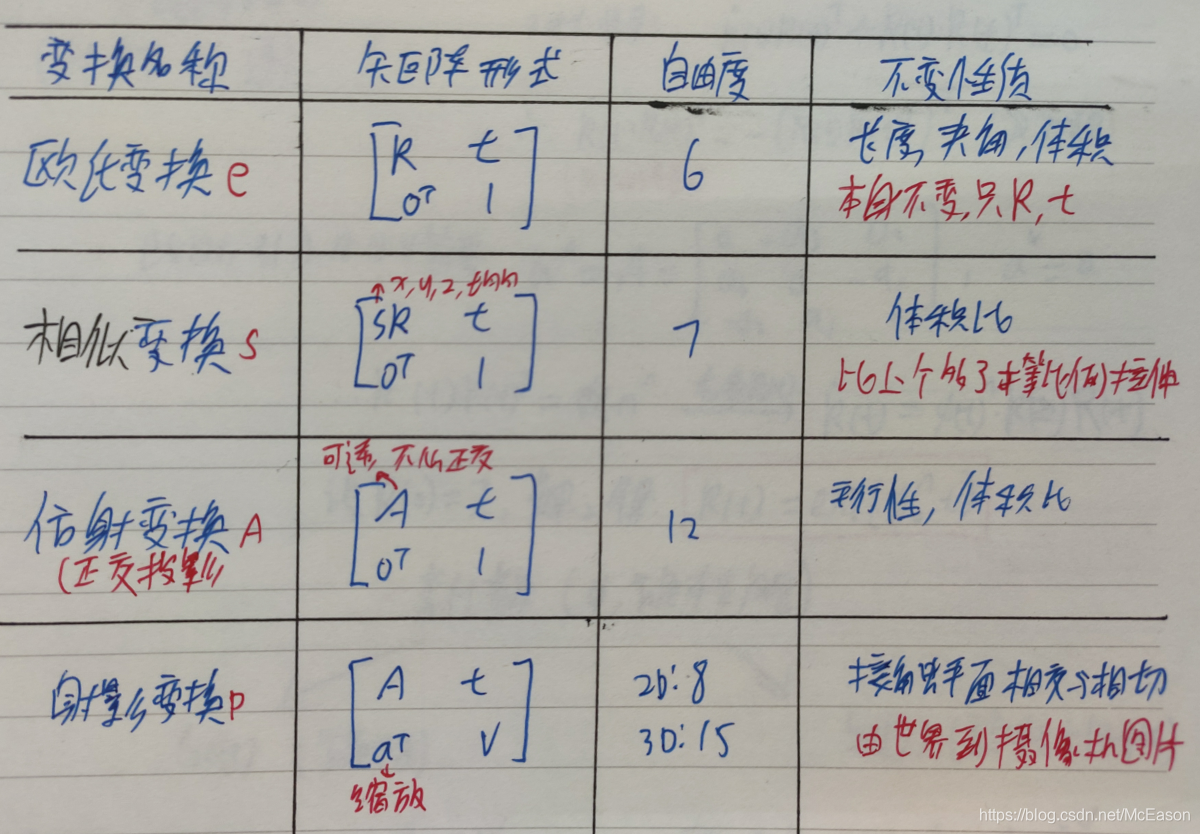 变换名称 矩阵形式 自由度 不变性质
欧氏变换e
R t
0ᵀ 1
6
长度,夹角,体积
本身不变,只R,t
相似变换s
x,y,z,
sR t
0ᵀ 1
7
体积比
比上个多了等比值
仿射变换A
(正交投影)
可逆,不必正交
A t
0ᵀ 1
12
平行性,体积比
射影变换p
A t
aᵀ v
缩放
2D:8
3D:15
接触平面相交与相切
由世界到摄像机图片
https://blog.csdn.net/McEason